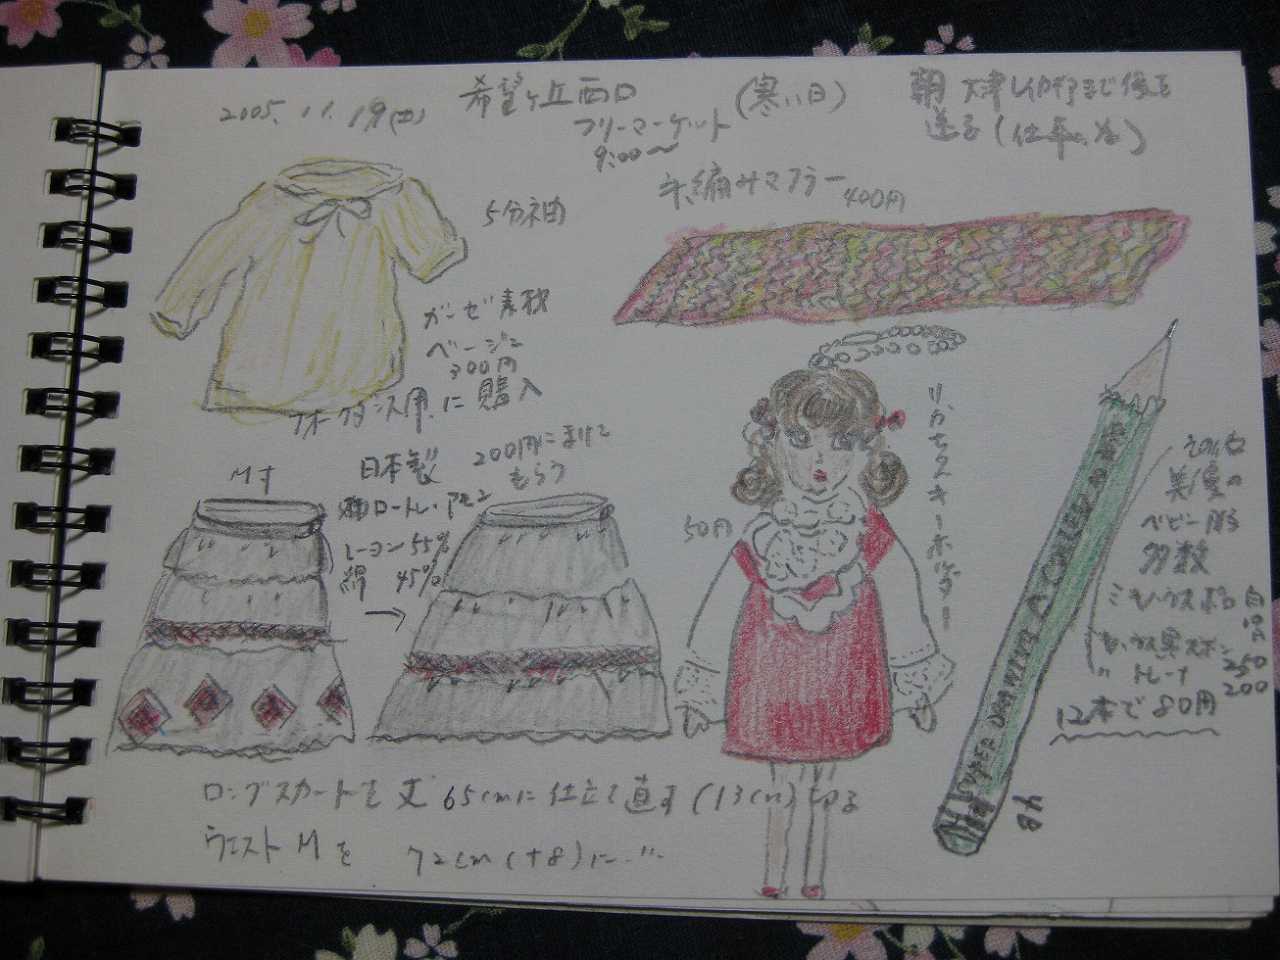 2005. 11. 19(土)
希望ヶ丘西口
フリーマーケット
9:00〜
(寒い日)
朝 大津
送る(仕事の為)
5分袖
ガーゼ素材
ベージュ
300円
フォークダンス用に購入
手編みマフラー 400円
M寸
日本製
200円にまけて
もらう
レーヨン 55%
綿 45%
→
50円
りかちゃんキーホルダー
その他
美/愛の
ベビー服
多数
ミキハウス 白
10円
250
トレーナー 200
12本で80円
4B
ロングスカートを丈 65cmに仕立て直す (13cm)
ウエスト Mを 72cm (+8)に…